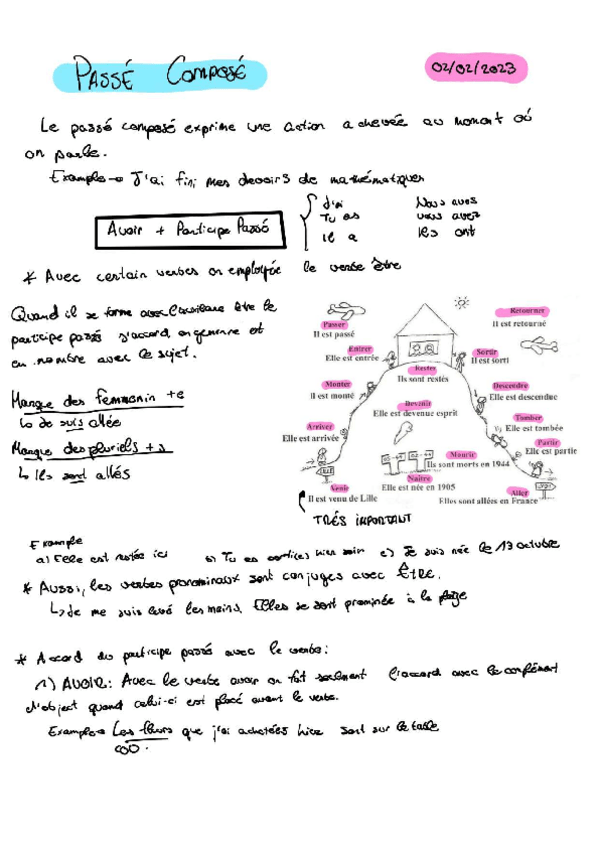 PASSÉ COMPOSÉ
02/02/2023
Le passé composé exprime une action achevée au moment où
on parle.
Example→ J'ai fini mes devoirs de mathématiques
Avoir + Participe Passé
J'ai
Tu as
il a
Nous avos
vous avez
ils ont
* Avec certain verbes on employée le verbe être
Quand il se forme avec l'auxiliaire être le
participe passé s'accord en genre et
en nombre avec le sujet.
Marque des femmanin +e
↳ Je suis allée
Marque des pluriels + s
↳ Ils sont allés
Retourner
Il est retourné
Passer
Il est passé
Entrer
Elle est entrée
Sortir
Il est sorti
Rester
Ils sont restés
Monter
Il est monté
Descendre
Elle est descendue
Devenir
Elle est devenue esprit
Tomber
Elle est tombée
Arriver
Elle est arrivée
Partir
Elle est partie
Mourir
Ils sont morts en 1944
Naître
Elle est née en 1905
Venir
Il est venu de Lille
Aller
Elles sont allées en France
TRÉS IMPORTANT
Example
a) Elle est restée ici b) Tu es sorties hier soir c) Je suis née le 13 octubre
* Aussi, les verbes pronominaux sont conjuges avec Être.
↳ Je me suis lavé les mains, Elles se sont prominée à la plage
* Accord du participe passé avec le verbe:
1) AVOIR: Avec le verbe avoir on fait seulment l'accord avec le complément
d'object quand celui-ci est placé avant le verbe.
Example→ Les fleurs que j'ai achetées hier sont sur la table
COD.